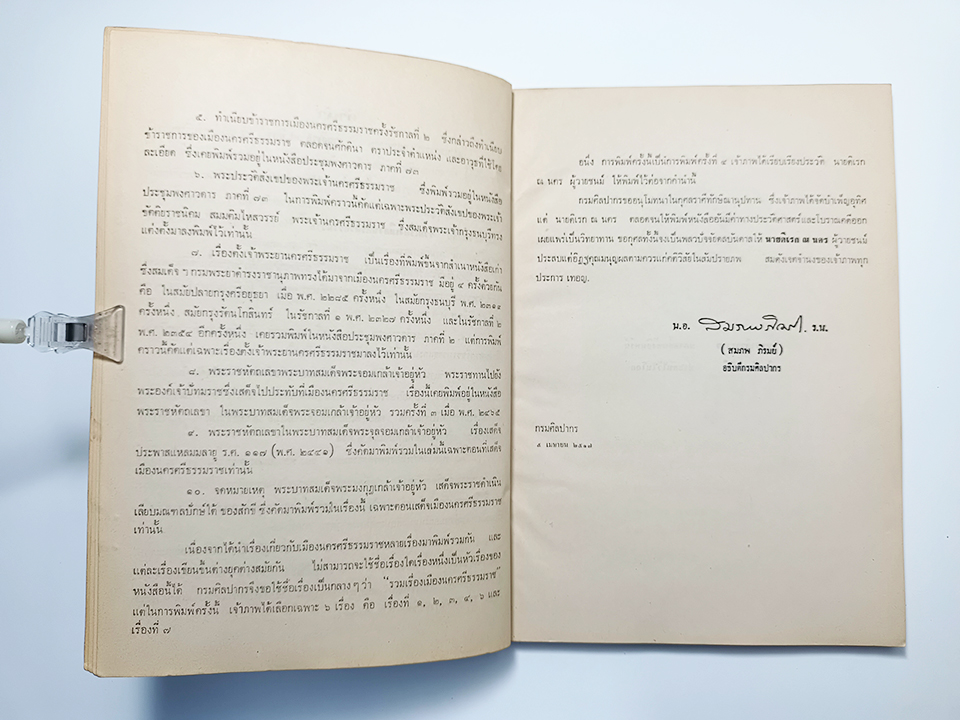 ๕. ทำเนียบข้าราชการเมืองนครศรีธรรมราชครั้งรัชกาลที่ ๒ ซึ่งกล่าวถึงทำเนียบ
ข้าราชการของเมืองนครศรีธรรมราช ตลอดจนศักดินา ตราประจำตำแหน่ง และอาวุธที่ใช้โดย
ละเอียด ซึ่งเคยพิมพ์รวมอยู่ในหนังสือประชุมพงศาวดาร ภาคที่ ๗๓
๖. พระประวัติสังเขปของพระเจ้านครศรีธรรมราช ซึ่งพิมพ์รวมอยู่ในหนังสือ
ประชุมพงศาวดาร ภาคที่ ๗๓ ในการพิมพ์คราวนี้คัดแต่เฉพาะพระประวัติสังเขปของพระเจ้า
ขัตติยราชนิคม สมมติมไหสวรรย์ พระเจ้านครศรีธรรมราช ซึ่งสมเด็จพระเจ้ากรุงธนบุรีทรง
แต่งตั้งมาลงพิมพ์ไว้เท่านั้น
๗. เรื่องตั้งเจ้าพระยานครศรีธรรมราช เป็นเรื่องที่พิมพ์ขึ้นจากสำเนาหนังสือเก่า
ซึ่งสมเด็จ ฯ กรมพระยาดำรงราชานุภาพทรงได้มาจากเมืองนครศรีธรรมราช มีอยู่ ๔ ครั้งด้วยกัน
คือ ในสมัยปลายกรุงศรีอยุธยา เมื่อ พ.ศ. ๒๒๘๕ ครั้งหนึ่ง ในสมัยกรุงธนบุรี พ.ศ. ๒๓๑๙
ครั้งหนึ่ง สมัยกรุงรัตนโกสินทร์ ในรัชกาลที่ ๑ พ.ศ. ๒๓๒๗ ครั้งหนึ่ง และในรัชกาลที่ ๒
พ.ศ. ๒๓๕๔ อีกครั้งหนึ่ง เคยรวมพิมพ์ในหนังสือประชุมพงศาวดาร ภาคที่ ๒ แต่การพิมพ์
คราวนี้คัดแต่เฉพาะเรื่องตั้งเจ้าพระยานครศรีธรรมราชมาลงไว้เท่านั้น
๘. พระราชหัตถเลขาพระบาทสมเด็จพระจอมเกล้าเจ้าอยู่หัว พระราชทานไปยัง
พระองค์เจ้าปัทมราชซึ่งเสด็จไปประทับที่เมืองนครศรีธรรมราช เรื่องนี้เคยพิมพ์อยู่ในหนังสือ
พระราชหัตถเลขา ในพระบาทสมเด็จพระจอมเกล้าเจ้าอยู่หัว รวมครั้งที่ ๓ เมื่อ พ.ศ. ๒๔๖๕
๙. พระราชหัตถเลขาในพระบาทสมเด็จพระจุลจอมเกล้าเจ้าอยู่หัว เรื่องเสด็จ
ประพาสแหลมมลายู ร.ศ. ๑๑๗ (พ.ศ. ๒๔๔๑) ซึ่งคัดมาพิมพ์รวมในเล่มนี้เฉพาะตอนที่เสด็จ
เมืองนครศรีธรรมราชเท่านั้น
๑๐. จดหมายเหตุ พระบาทสมเด็จพระมงกุฎเกล้าเจ้าอยู่หัว เสด็จพระราชดำเนิน
เลียบมณฑลปักษ์ใต้ ของสักขี ซึ่งคัดมาพิมพ์รวมในเรื่องนี้ เฉพาะตอนเสด็จเมืองนครศรีธรรมราช
เท่านั้น
เนื่องจากได้นำเรื่องเกี่ยวกับเมืองนครศรีธรรมราชหลายเรื่องมาพิมพ์รวมกัน และ
แต่ละเรื่องเขียนขึ้นต่างยุคต่างสมัยกัน ไม่สามารถจะใช้ชื่อเรื่องใดเรื่องหนึ่งเป็นหัวเรื่องของ
หนังสือนี้ได้ กรมศิลปากรจึงขอใช้ชื่อเรื่องเป็นกลาง ๆ ว่า “รวมเรื่องเมืองนครศรีธรรมราช”
แต่ในการพิมพ์ครั้งนี้ เจ้าภาพได้เลือกเฉพาะ ๖ เรื่อง คือ เรื่องที่ ๑, ๒, ๓, ๔, ๖ และ
เรื่องที่ ๗
อนึ่ง การพิมพ์ครั้งนี้เป็นการพิมพ์ครั้งที่ ๔ เจ้าภาพได้เรียบเรียงประวัติ นายดิเรก
ณ นคร ผู้วายชนม์ ให้พิมพ์ไว้ต่อจากคำนำนี้
กรมศิลปากรขออนุโมทนาในกุศลราศีทักษิณานุปทาน ซึ่งเจ้าภาพได้จัดบำเพ็ญอุทิศ
แด่ นายดิเรก ณ นคร ตลอดจนให้พิมพ์หนังสืออันมีค่าทางประวัติศาสตร์และโบราณคดีออก
เผยแพร่เป็นวิทยาทาน ขอกุศลทั้งนี้จงเป็นพลวปัจจัยดลบันดาลให้ นายดิเรก ณ นคร ผู้วายชนม์
ประสบแต่อิฏฐคุณมนุญผลตามควรแก่คติวิสัยในสัมปรายภพ สมดังเจตจำนงของเจ้าภาพทุก
ประการ เทอญ.
น.อ. สมภพ ภิรมย์ ร.น.
(สมภพ ภิรมย์)
อธิบดีกรมศิลปากร
กรมศิลปากร
๙ เมษายน ๒๕๑๗